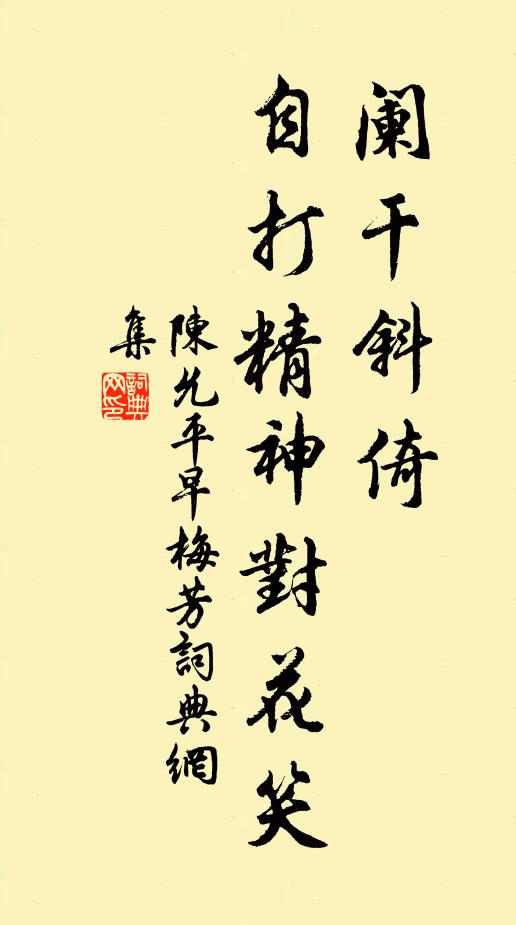 阑干斜倚
自打精神對花笑
陳允平早梅芳詞典網
集
詞典
网印